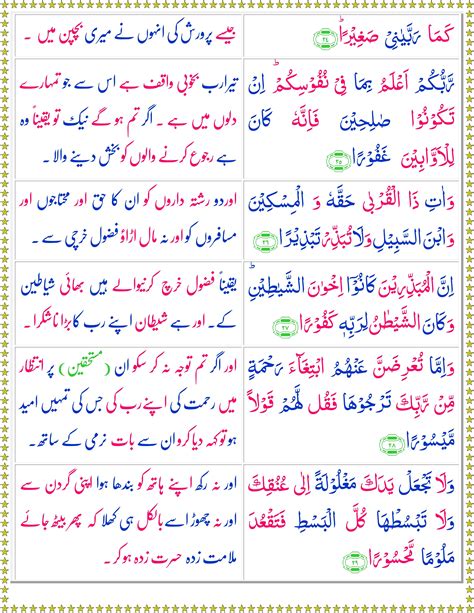 كَمَا رَبَّيٰنِىۡ صَغِيۡرًاؕ ﴿۲۴﴾
جیسے پرورش کی انہوں نے میری بچپن میں ۔
رَّبُّكُمۡ اَعۡلَمُ بِمَا فِىۡ نُفُوۡسِكُمۡؕ اِنۡ
تَكُوۡنُوۡا صٰلِحِيۡنَ فَاِنَّهٗ كَانَ
لِلۡاَوَّابِيۡنَ غَفُوۡرًا ﴿۲۵﴾
تیرا رب بخوبی واقف ہے اس سے جو تمہارے
دلوں میں ہے ۔ اگر تم ہو گے نیک تو یقیناً وہ
ہے رجوع کرنے والوں کو بخش دینے والا ۔
وَاٰتِ ذَا الۡقُرۡبٰى حَقَّهٗ وَ الۡمِسۡكِيۡنَ
وَابۡنَ السَّبِيۡلِ وَلَا تُبَذِّرۡ تَبۡذِيۡرًا ﴿۲۶﴾
اور دو رشتہ داروں کو ان کا حق اور محتاجوں اور
مسافروں کو اور نہ مال اڑاؤ فضول خرچی سے ۔
اِنَّ الۡمُبَذِّرِيۡنَ كَانُوۡۤا اِخۡوَانَ الشَّيٰطِيۡنِؕ
وَكَانَ الشَّيۡطٰنُ لِرَبِّهٖ كَفُوۡرًا ﴿۲۷﴾
یقیناً فضول خرچ کرنیوالے ہیں بھائی شیاطین
کے۔ اور ہے شیطان اپنے رب کا بڑا ناشکرا ۔
وَاِمَّا تُعۡرِضَنَّ عَنۡهُمُ ابۡتِغَآءَ رَحۡمَةٍ
مِّنۡ رَّبِّكَ تَرۡجُوۡهَا فَقُل لَّهُمۡ قَوۡلًا
مَّيۡسُوۡرًا ﴿۲۸﴾
اور اگر تم توجہ نہ کر سکو ان (مستحقین) پر انتظار
میں رحمت کی اپنے رب کی جس کی تمہیں امید
ہو تو کہہ دیا کرو ان سے بات نرمی کے ساتھ۔
وَلَا تَجۡعَلۡ يَدَكَ مَغۡلُوۡلَةً اِلٰى عُنُقِكَ
وَلَا تَبۡسُطۡهَا كُلَّ الۡبَسۡطِ فَتَقۡعُدَ
مَلُوۡمًا مَّحۡسُوۡرًا ﴿۲۹﴾
اور نہ رکھ اپنے ہاتھ کو بندھا ہوا اپنی گردن سے
اور نہ چھوڑ اسے بالکل ہی کھلا کہ پھر بیٹھ جائے
ملامت زدہ حسرت زدہ ہو کر ۔